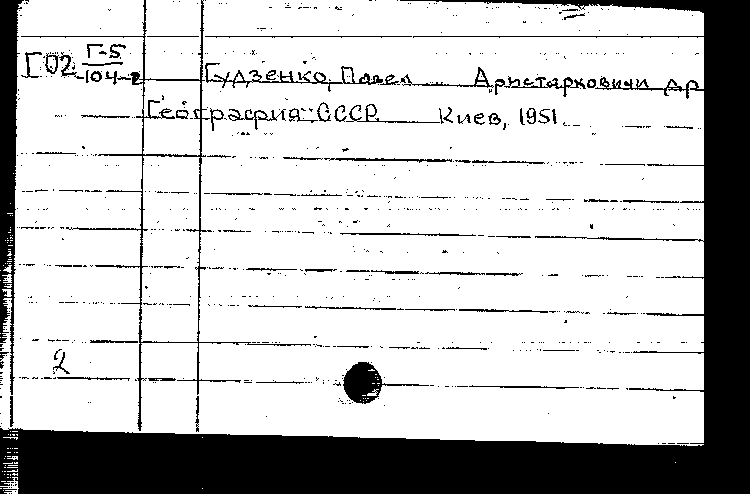 Г-5
Г02 104-2 Гудзенко, Павел Аристархович и др
География СССР Киев, 1951.
2